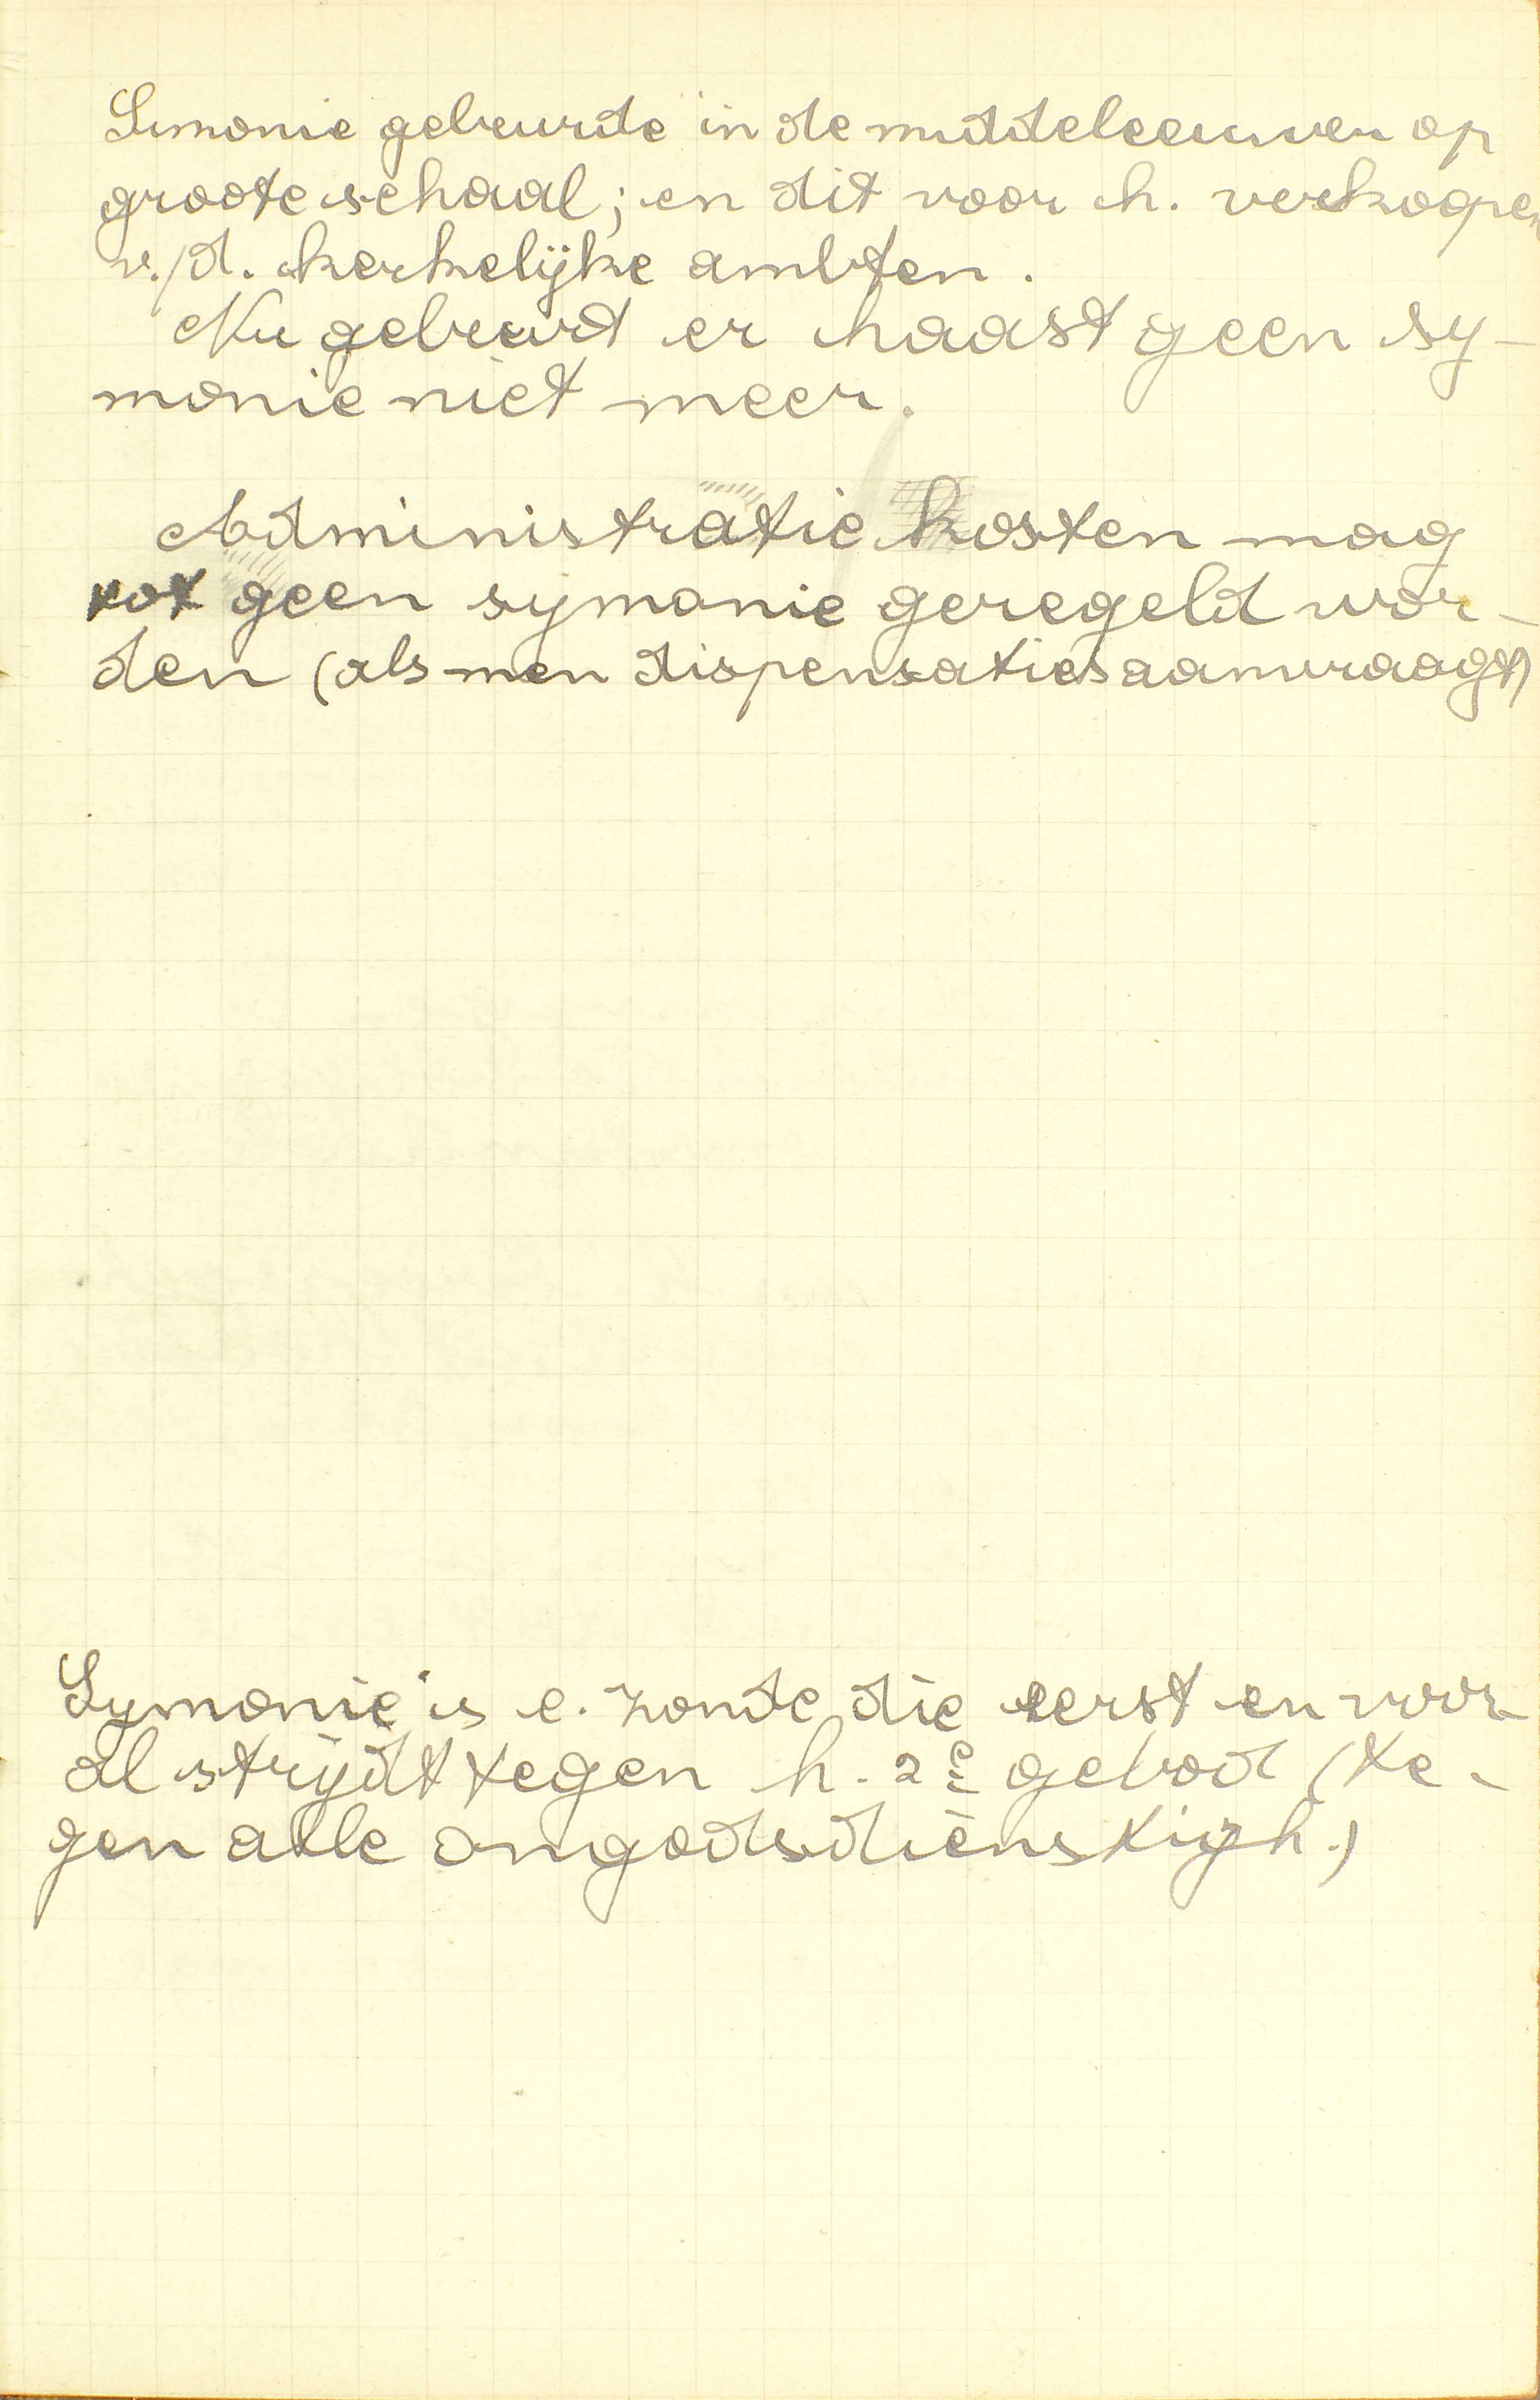 Simonie gebeurde in de middeleeuwen op
groote schaal; en dit voor h. verkoopen
v./d. kerkelijke ambten.
Nu gebeurd er haast geen sy-
monie niet meer.
Administratie kosten mag
tot geen symonie geregeld wor-
den (als men dispensaties aanvraagt)
Symonie is e. zonde die eerst en voor
al strijdt tegen h. 2e gebod (te-
gen alle ongodsdienstigh.)